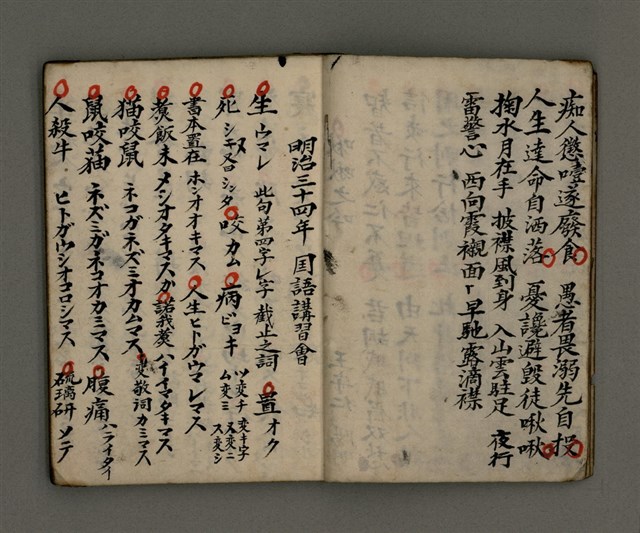 痴人懲噎遂廢食　愚者畏溺先自投
人生達命自洒落　憂讒避毀徒啾啾
掬水月在手　披襟風到身　入山雲駐足　夜行
雷警心　西向霞襯面　早馳露滴襟
明治三十四年　囯語講習會
生　ウマレ　此句第四字レ字　截止之詞　置　オク
死　シヌ　又ロシンタ　咬　カム　病　ビョキ　ツ変チ　ム変ミ　変キ字　ヌ変ニ　ス変シ
書本置在　ホンオオキマス　人生ヒトガウマレマス
煑飯未　メシオタキマスカ　諾我煑　ハイイマタキマス
猫咬鼠　ネコガネズミオカムマス　変敬詞カミマス
鼠咬猫　ネズミガネコオカミマス　腹痛　ハライタイ
人殺牛　ヒトガウシオコロシマス　硫璃研　ソンテ